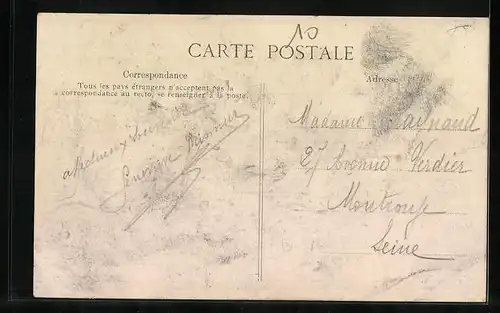 10
CARTE POSTALE
Correspondance
Tous les pays étrangers n'acceptent pas la
correspondance au recto, se renseigner à la poste.
Adresse
affectueux Souvenir
Madame Raynaud
27 Avenue Verdier
Montrouge
Seine